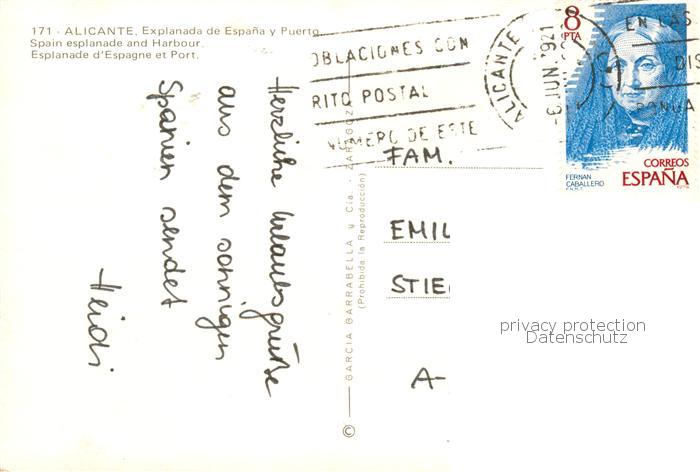 171 - ALICANTE, Explanada de España y Puerto.
Spain esplanade and Harbour.
Esplanade d'Espagne et Port.
Herzliche Urlaubsgrüße
aus dem sonnigen
Spanien sendet
Heidi
© GARCIA GARRABELLA y Cía. - ZARAGOZA
(Prohibida la Reproducción)
OBLACIONES CON
RITO POSTAL
NUMERO DE ESTE
ALICANTE
EN LAS
DIS
8
PTA
CORREOS
ESPAÑA
FERNAN
CABALLERO
FAM.
EMIL
STIE
A-
privacy protection
Datenschutz